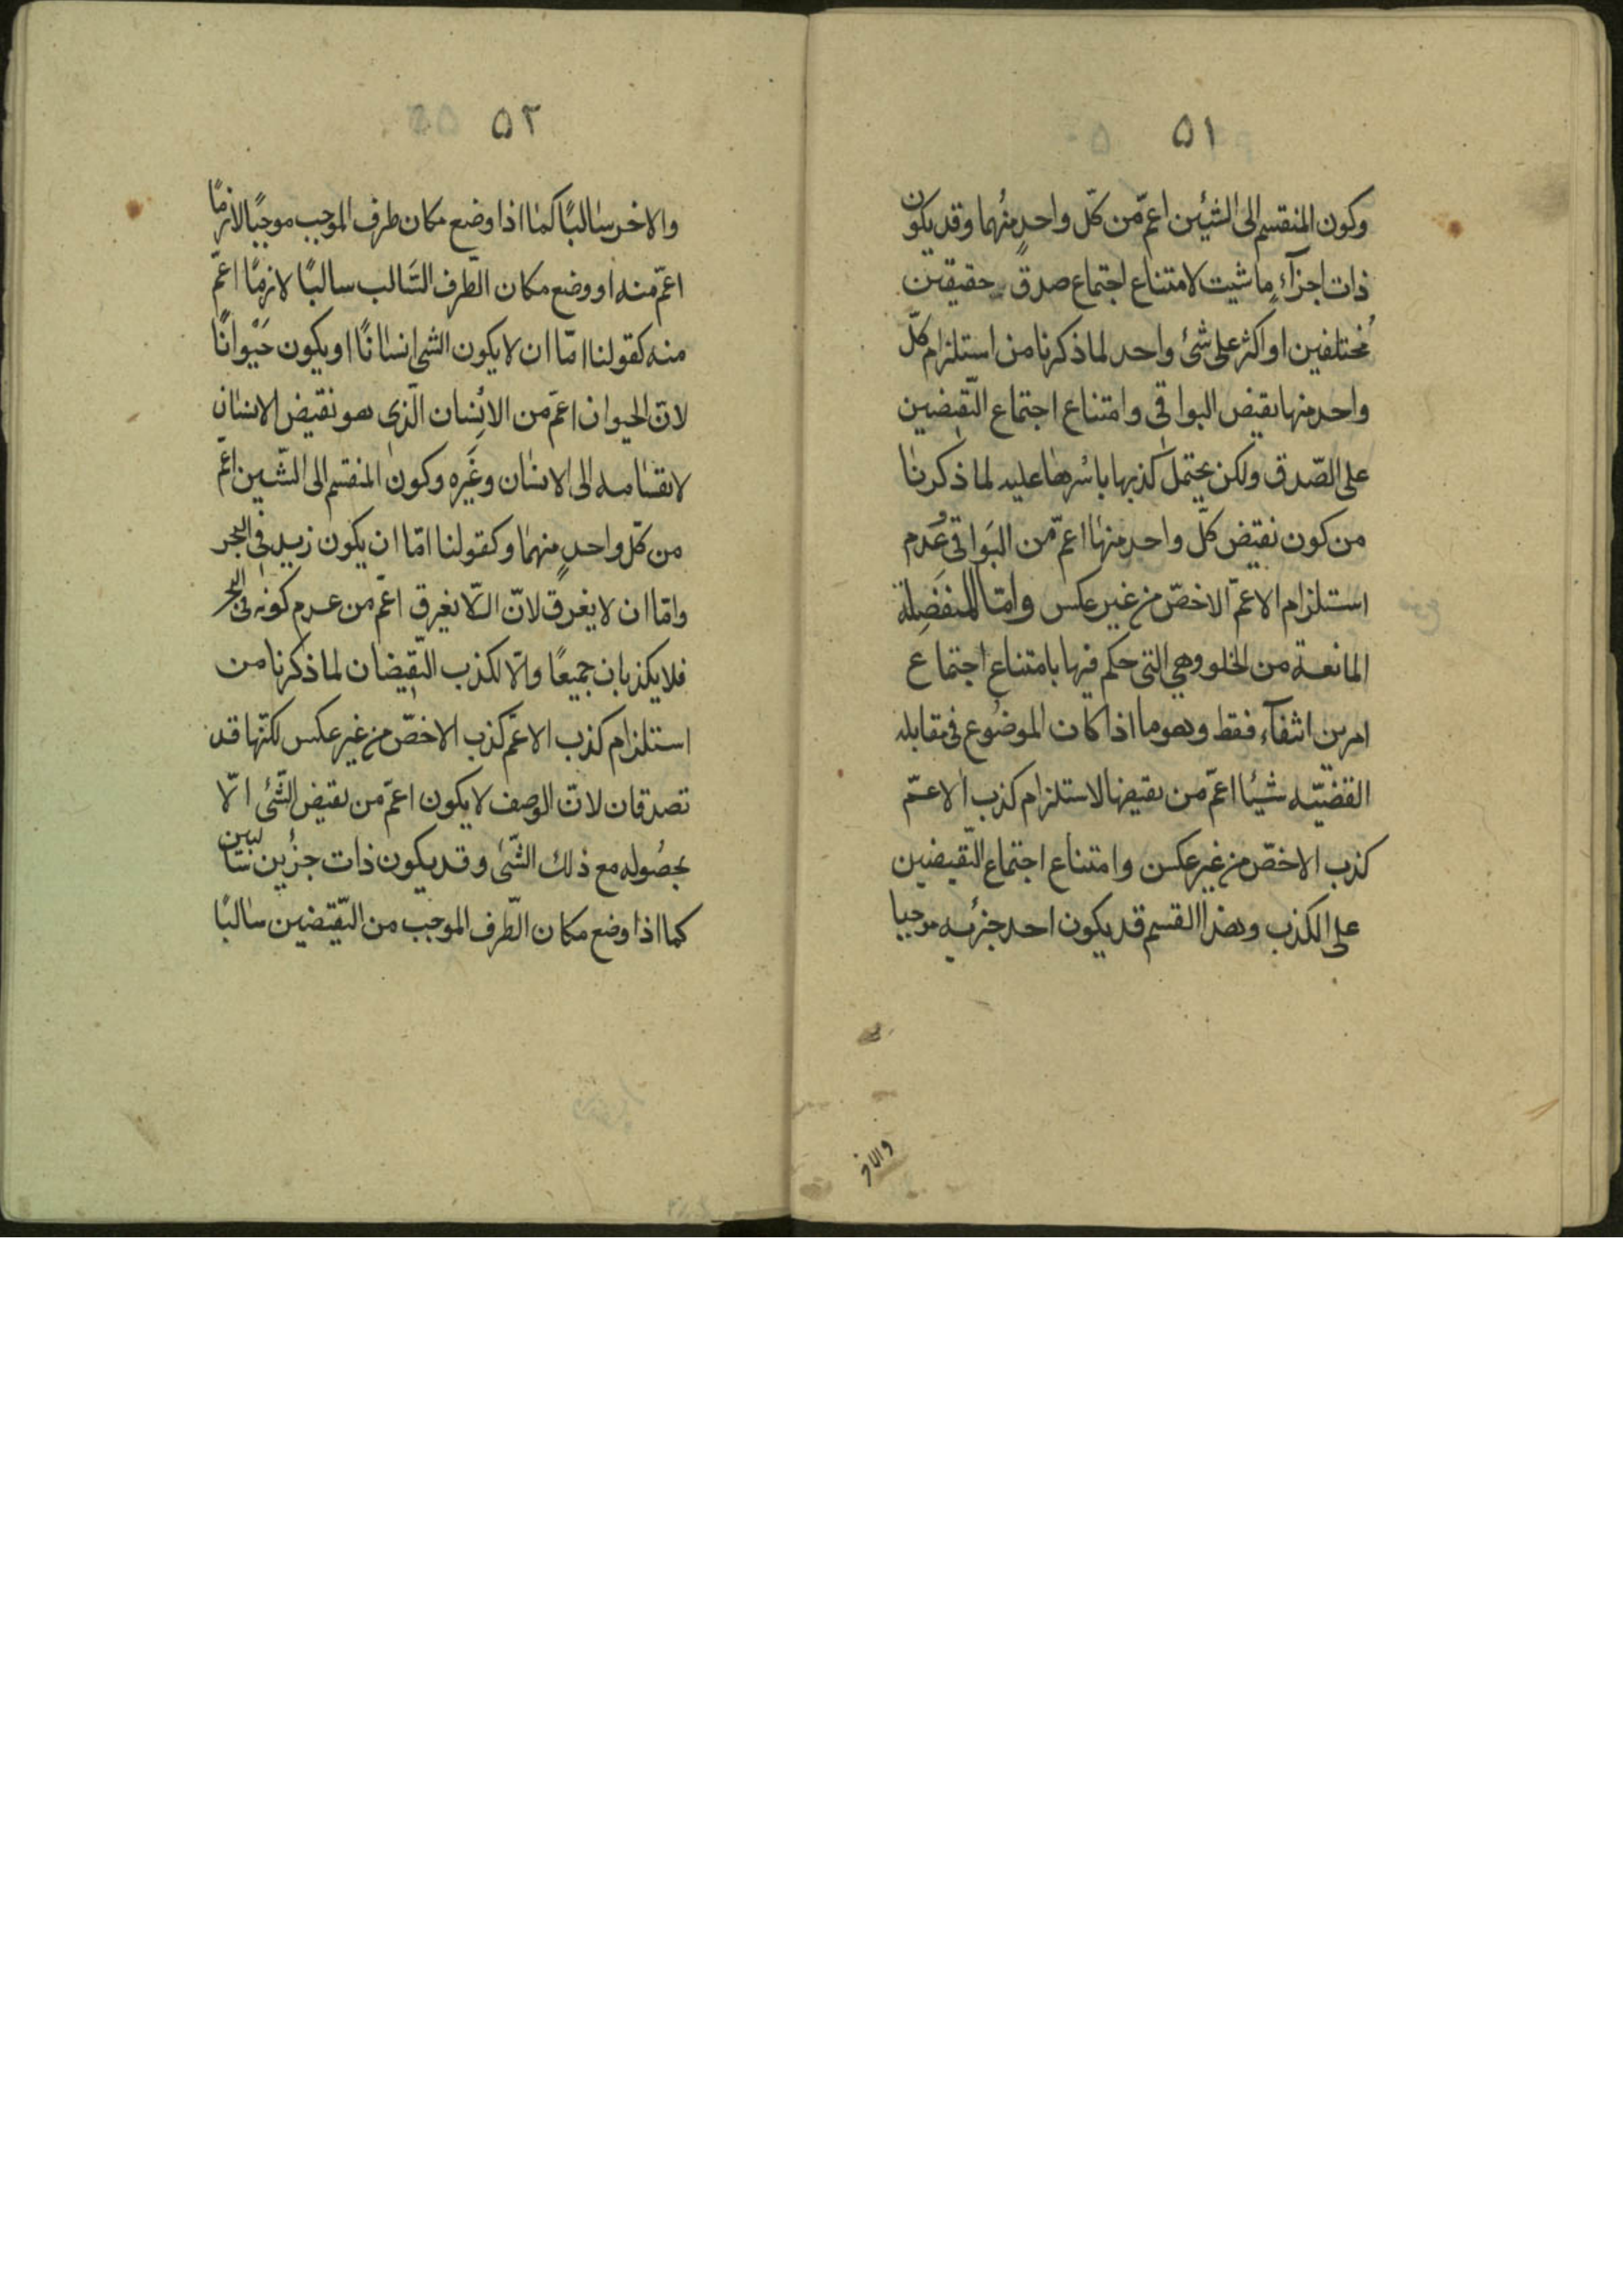 ٥١
وكون المنقسم الى الشيئين اعمّ من كلّ واحدٍ منهما وقد يكون
ذات اجزآءٍ ما شيت لامتناع اجتماع صدق حقيقتين
مُختلفين او اكثر على شئ واحد لما ذكرنا من استلزام كلّ
واحد منها نقيض البواقى وامتناع اجتماع النّقيضين
على الصّدق ولكن يحتمل كذبها باسْرها عليه لما ذكرنا
من كون نقيض كلّ واحد منها اعمّ من البَواقى وعُدم
استلزام الاعمّ الاخصّ من غير عكس وامّا المنفصِلة
المانعة من الخلو وهى التى حكم فيها بامتناع اجتماع
امرين انتفآء فقط وهو ما اذا كان الموضُوع فى مقابله
القضيّه شيئا اعمّ من نقيضها لاستلزام كذب الاعمّ
كذب الاخصّ من غير عكس وامتناع اجتماع النّقيضين
على الكذب وهذا القسم قد يكون احد جزئيه موجبا
والاخر
٥٢
والاخر سالبًا كما اذا وضع مكان طرف الموجب موجبًا لازمًا
اعمّ منه او وضع مكان الطّرف السَّالب سالبًا لازمًا اعمّ
منه كقولنا امّا ان لا يكون الشى انسانًا او يكون حَيْوانًا
لانّ الحيوان اعمّ من الانِسان الّذى هو نقيض الانسان
لانقسامه الى الانسان وغَيره وكون المنقسم الى الشّيين اعمّ
من كلّ واحدٍ منهما وكقولنا امّا ان يكون زيد فى البحر
وامّا ان لا يغرق لانّ الّلا يغرق اعمّ من عدم كونه فى البحر
فلا يكذبان جميعًا والّا لكذب النّقيضان لما ذكرنا من
استلزام كذب الاعمّ كذب الاخصّ من غير عكس لكنّها قد
تصدقان لانّ الوصف لا يكون اعمّ من نقيض الشّئ الّا
بحصُوله مع ذلك الشّئ وقد يكون ذات جزُين سَالبين
كما اذا وضع مكان الطّرف الموجب من النّقيضين سالبًا